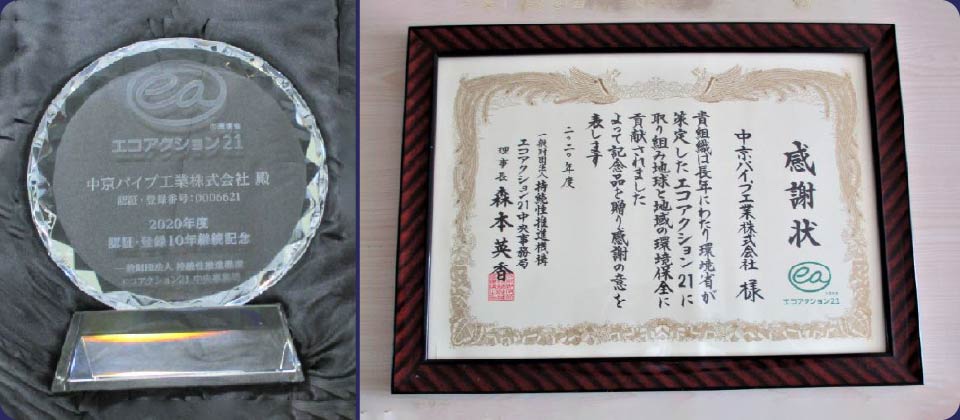 ea
エコアクション21
中京パイプ工業株式会社 殿
認証・登録番号:0006621
2020年度
認証・登録10年継続記念
一般財団法人 持続性推進機構
エコアクション21中央事務局
感謝状
中京パイプ工業株式会社 様
貴組織は長年にわたり環境省が
策定したエコアクション21に
取り組み地球と地域の環境保全に
貢献されました
よって記念品を贈り感謝の意を
表します
二〇二〇年度
一般財団法人 持続性推進機構
エコアクション21中央事務局
理事長 森本英香
ea
エコアクション21